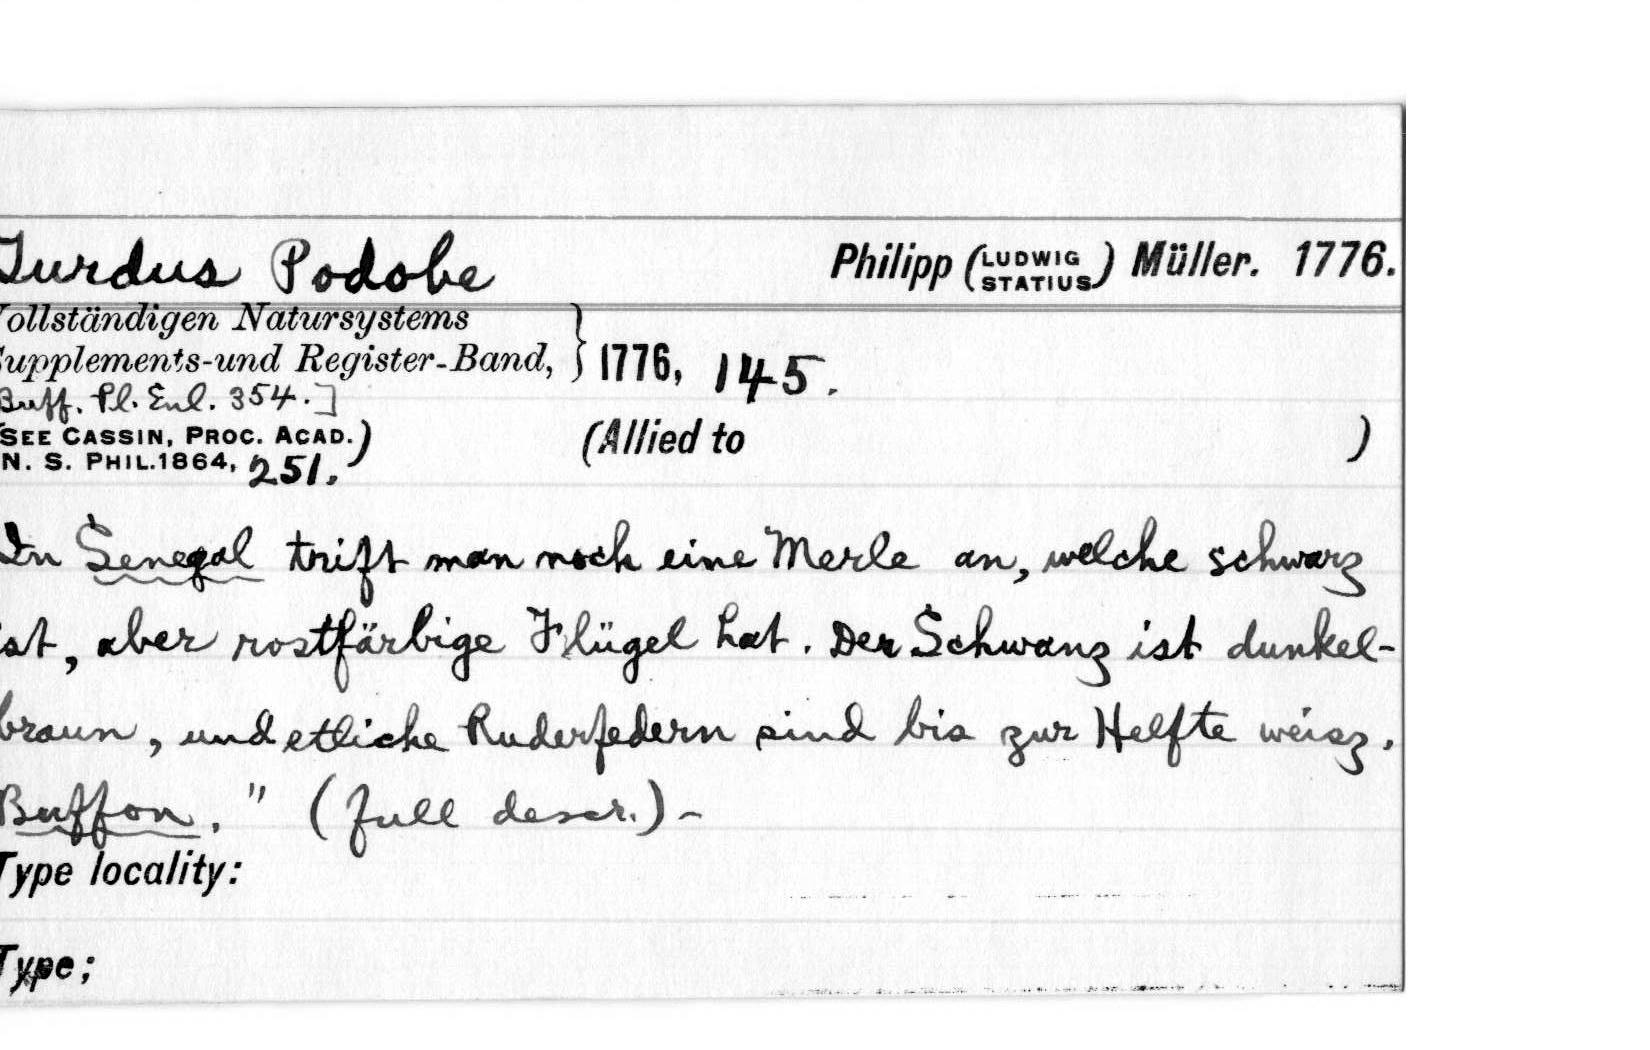 Turdus Podobe Philipp (LUDWIG STATIUS) Müller. 1776.
ollständigen Natursystems
Supplements-und Register-Band, } 1776, 145.
Buff. Pl. Enl. 354.]
(SEE CASSIN, PROC. ACAD. N. S. PHIL. 1864, 251.) (Allied to )
In Senegal trift man noch eine Merle an, welche schwarz
ist, aber rostfärbige Flügel hat. Der Schwanz ist dunkel-
braun, und etliche Ruderfedern sind bis zur Helfte weisz.
Buffon." (full descr.)-
Type locality:
Type;